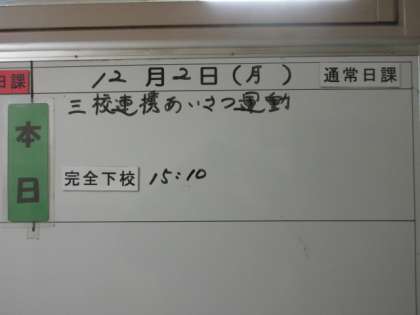 日課 12月2日(月) 通常日課
三校連携あいさつ運動
本日
完全下校 15:10